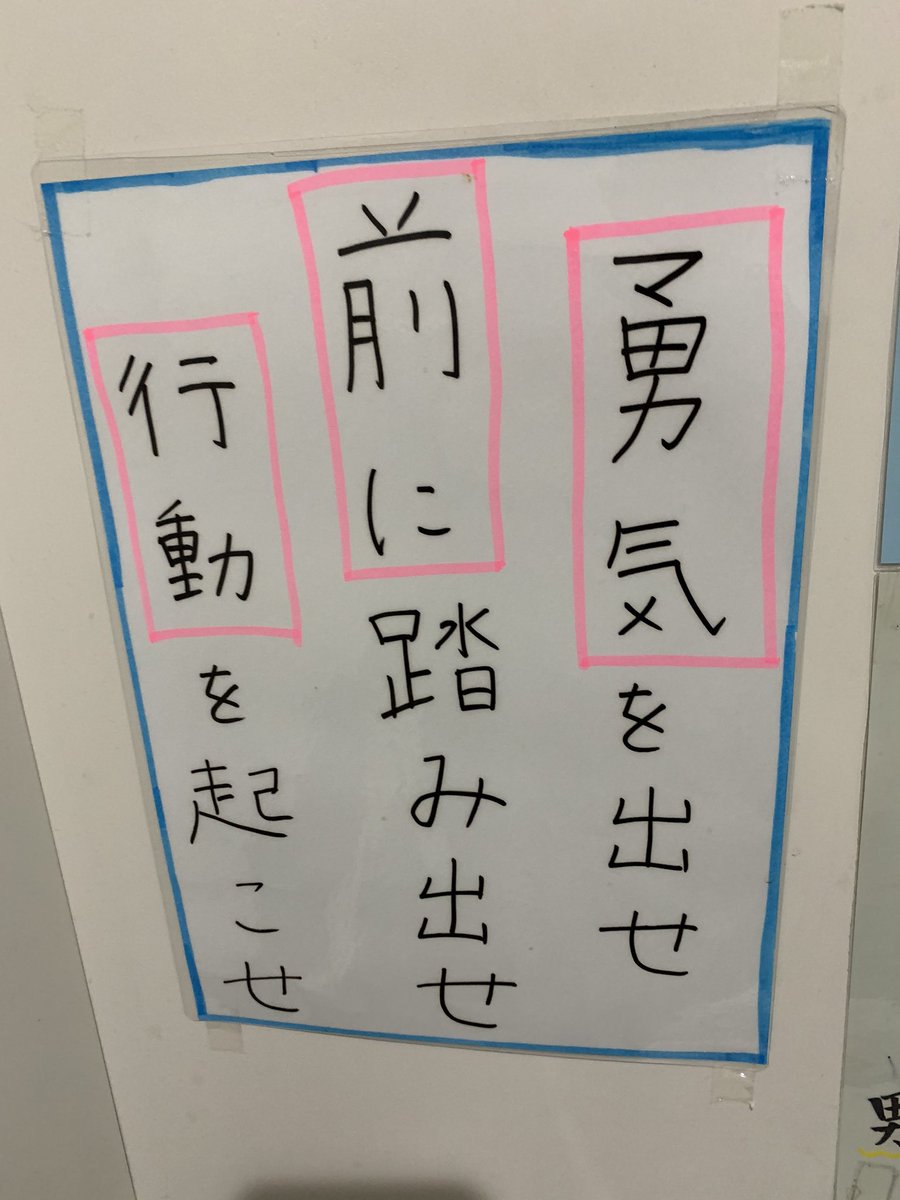 勇気を出せ
前に踏み出せ
行動を起こせ
男